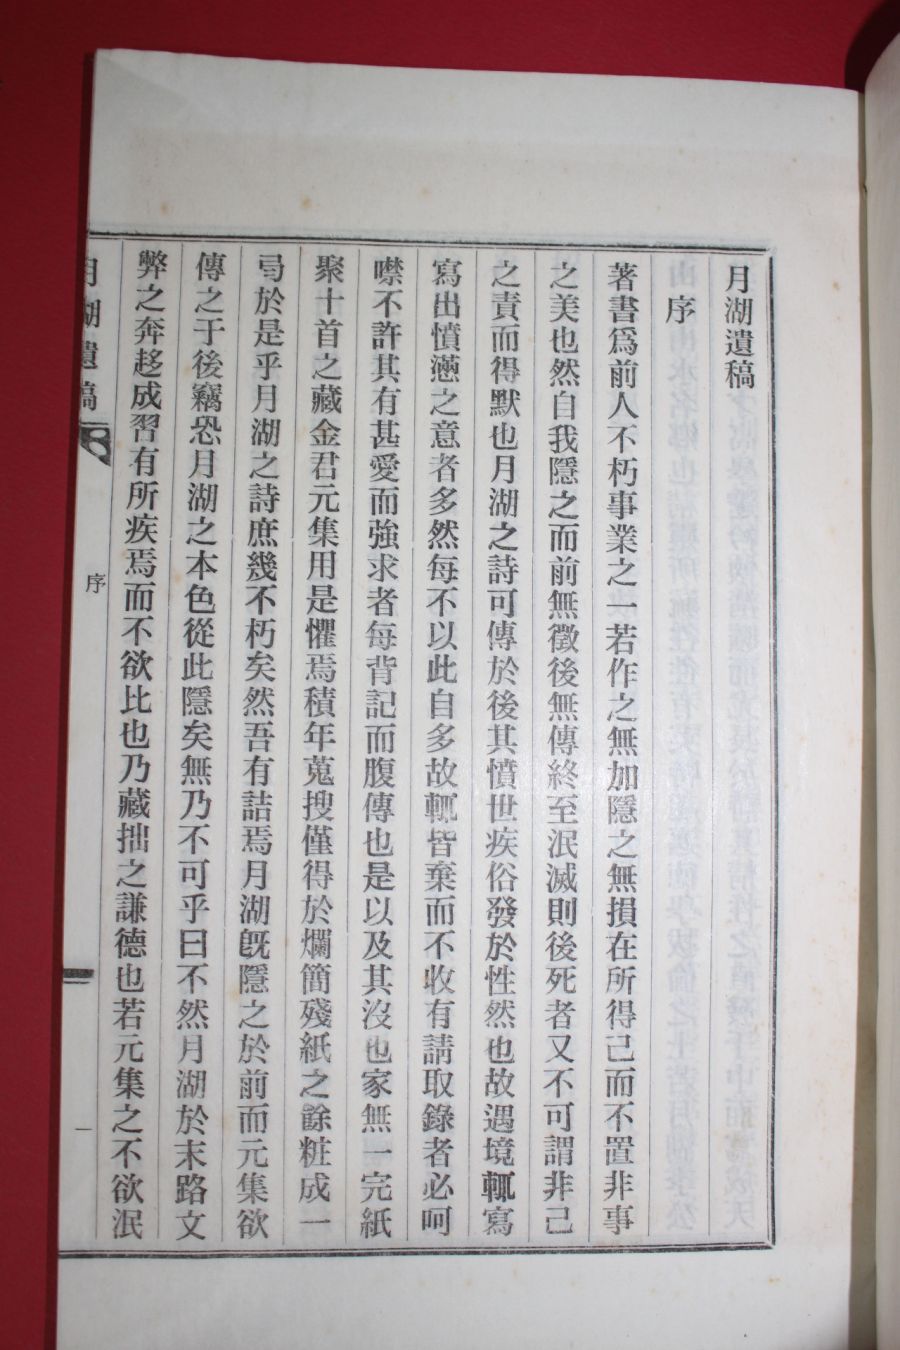 月湖遺稿
序
著書爲前人不朽事業之一若作之無加隱之無損在所得己而不置非事
之美也然自我隱之而前無徵後無傳終至泯滅則後死者又不可謂非己
之責而得默也月湖之詩可傳於後其憤世疾俗發於性然也故遇境輒寫
寫出憤懣之意者多然每不以此自多故輒皆棄而不收有請取錄者必呵
噤不許其有甚愛而強求者每背記而腹傳也是以及其沒也家無一完紙
聚十首之藏金君元集用是懼焉積年蒐搜僅得於爛簡殘紙之餘粧成一
局於是乎月湖之詩庶幾不朽矣然吾有詰焉月湖旣隱之於前而元集欲
傳之于後竊恐月湖之本色從此隱矣無乃不可乎曰不然月湖於末路文
弊之奔趍成習有所疾焉而不欲比也乃藏拙之謙德也若元集之不欲泯
月湖遺稿
序
一